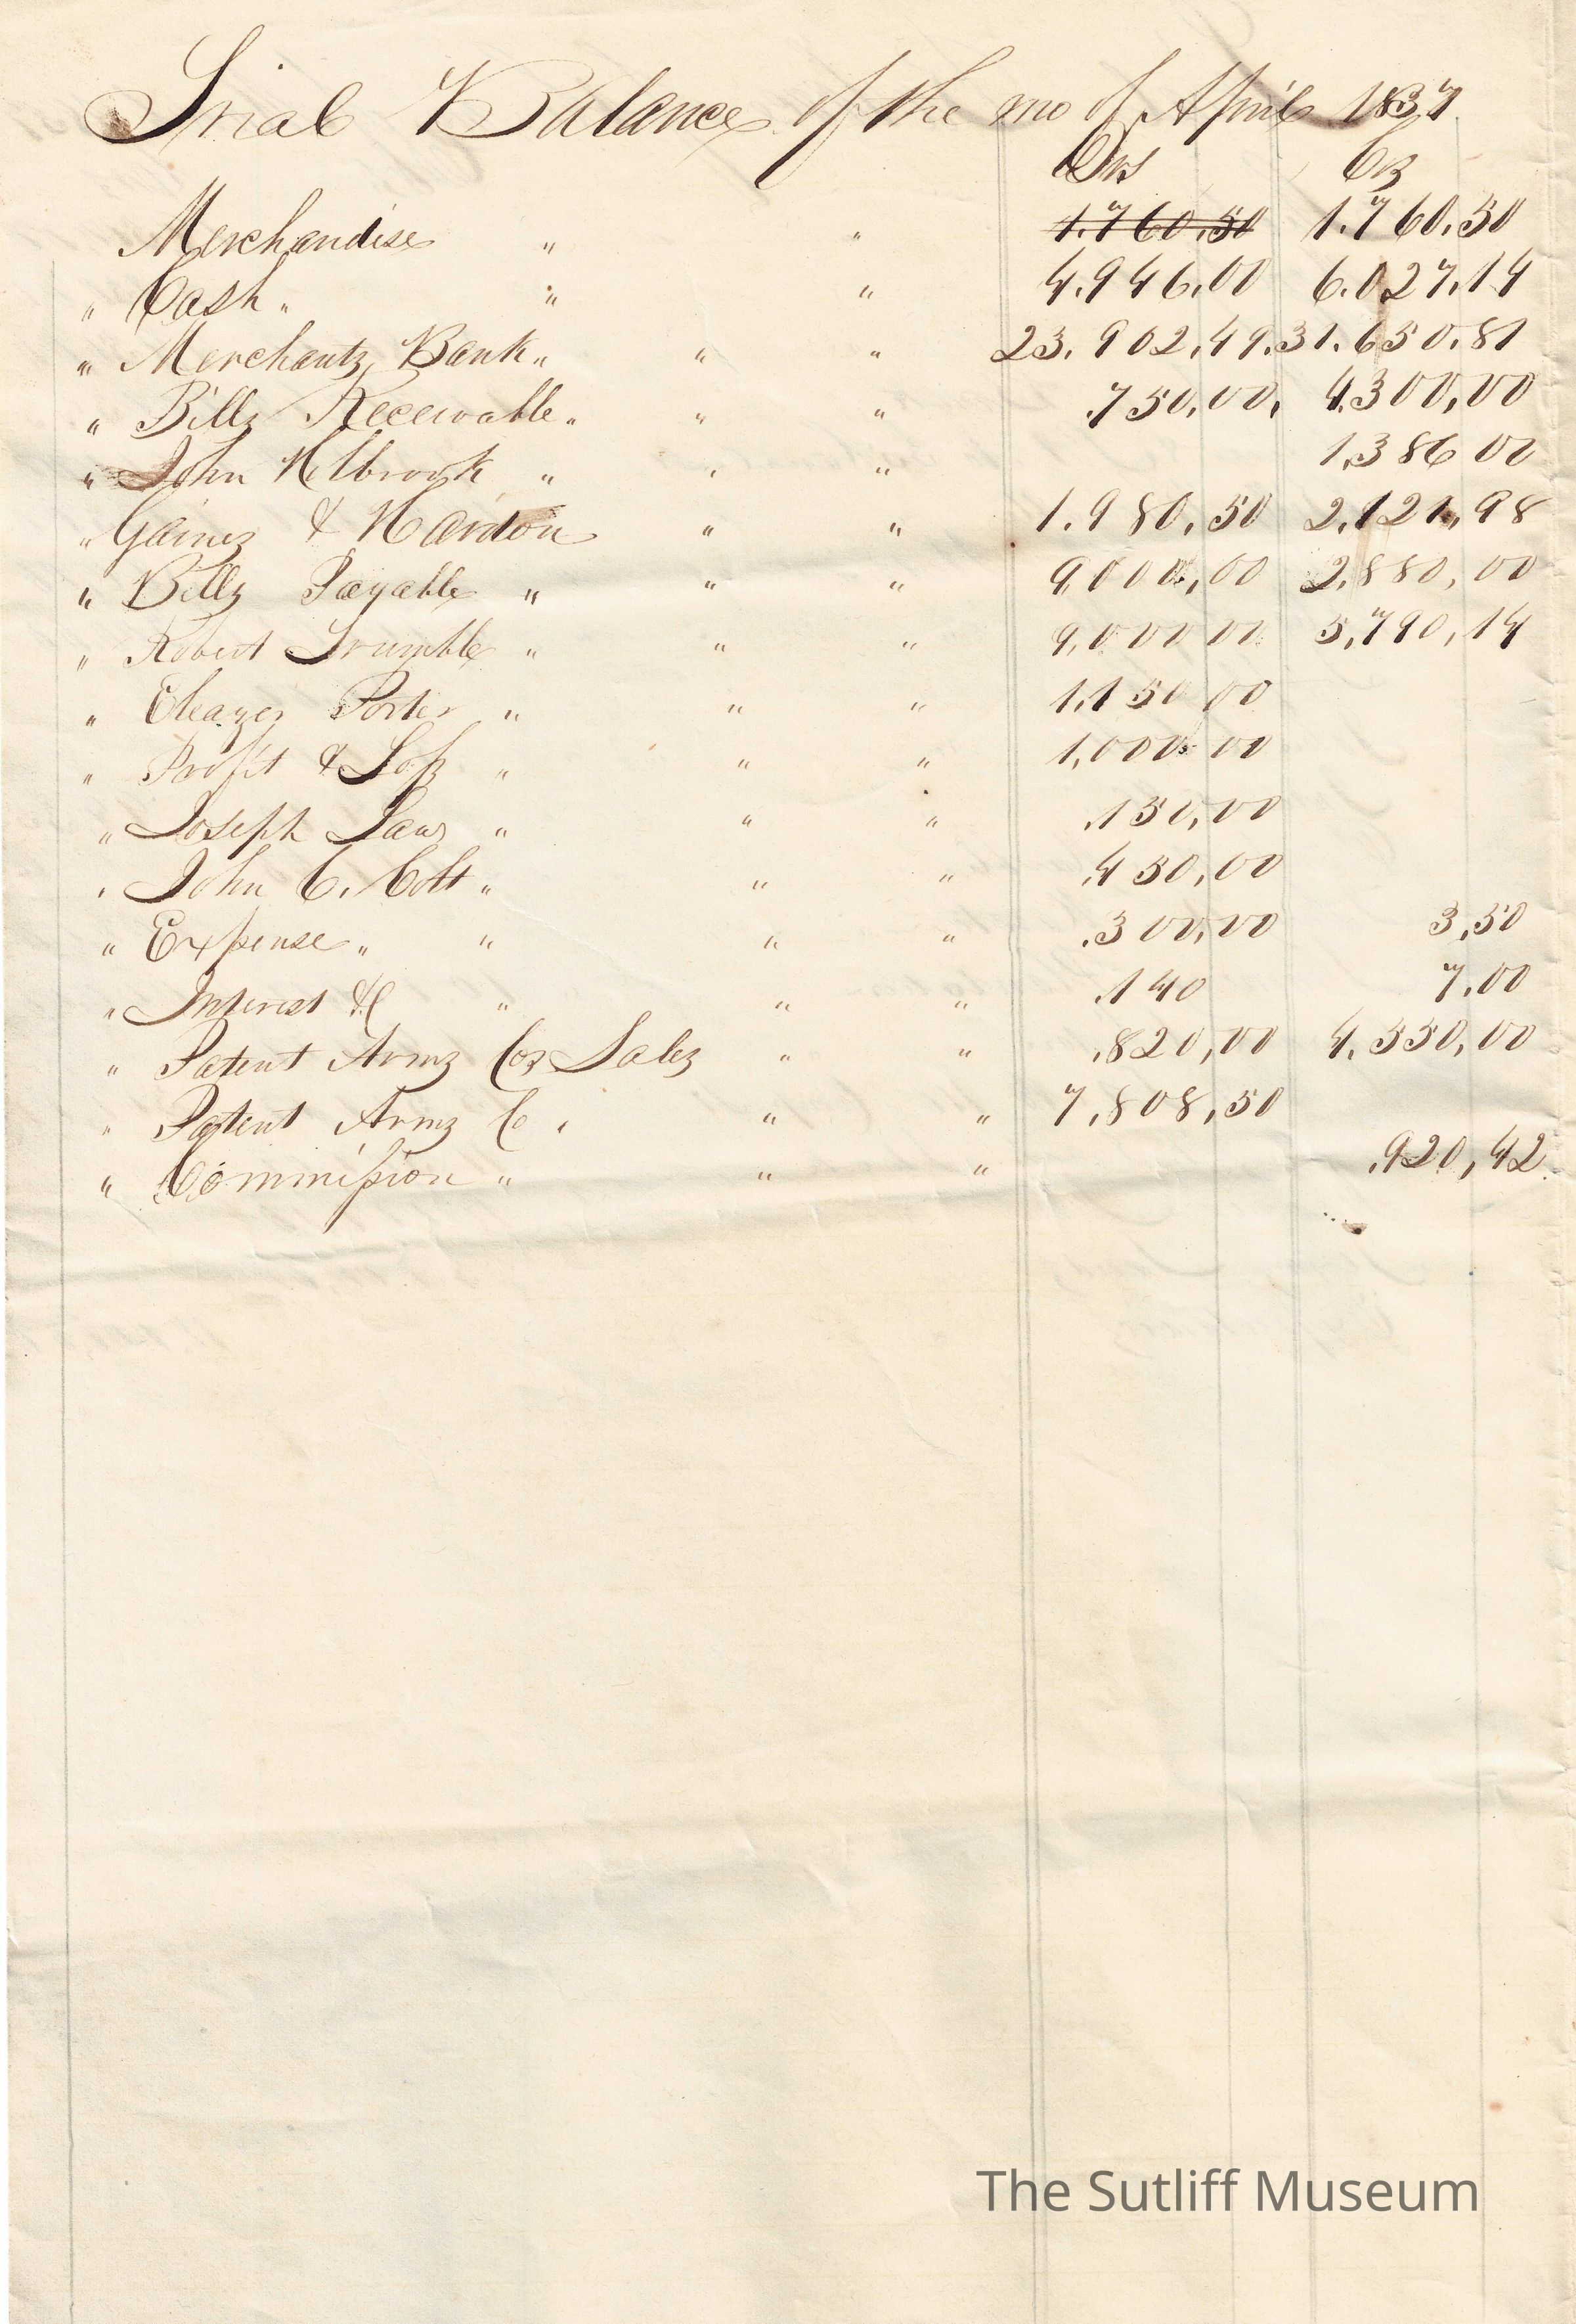 Trial Balance of the mo of April 1837.
Drs Cr
Merchandise " " 1.760,50 1.760.50
" Cash " " " 4.946.00 6.027.14
" Merchants Bank " " " 23.902,49. 31.650.81
" Bills Receivable " " " .750.00, 4.300,00
" John Holbrook " " " 1.386 00
" Gaines & " " 1.980,50 2,121,98
" Bills Payable " " " 9,000,00 2,880,00
" Robert Trumble " " " 9,000 00 5,790,14
" Eleazer Porter " " " 1,150 00
" Profit & Loss " " " 1,000 00
" Joseph Law " " " .150,00
" John C. Colt " " " .450,00
" Expense " " " " .300,00 3,50
" Interest &c " " " .140 7.00
" Patent Arms Cos Sales " " .820,00 4,550,00
" Patent Arms C. " " 7,808,50
" Commission " " " .920,42
The Sutliff Museum